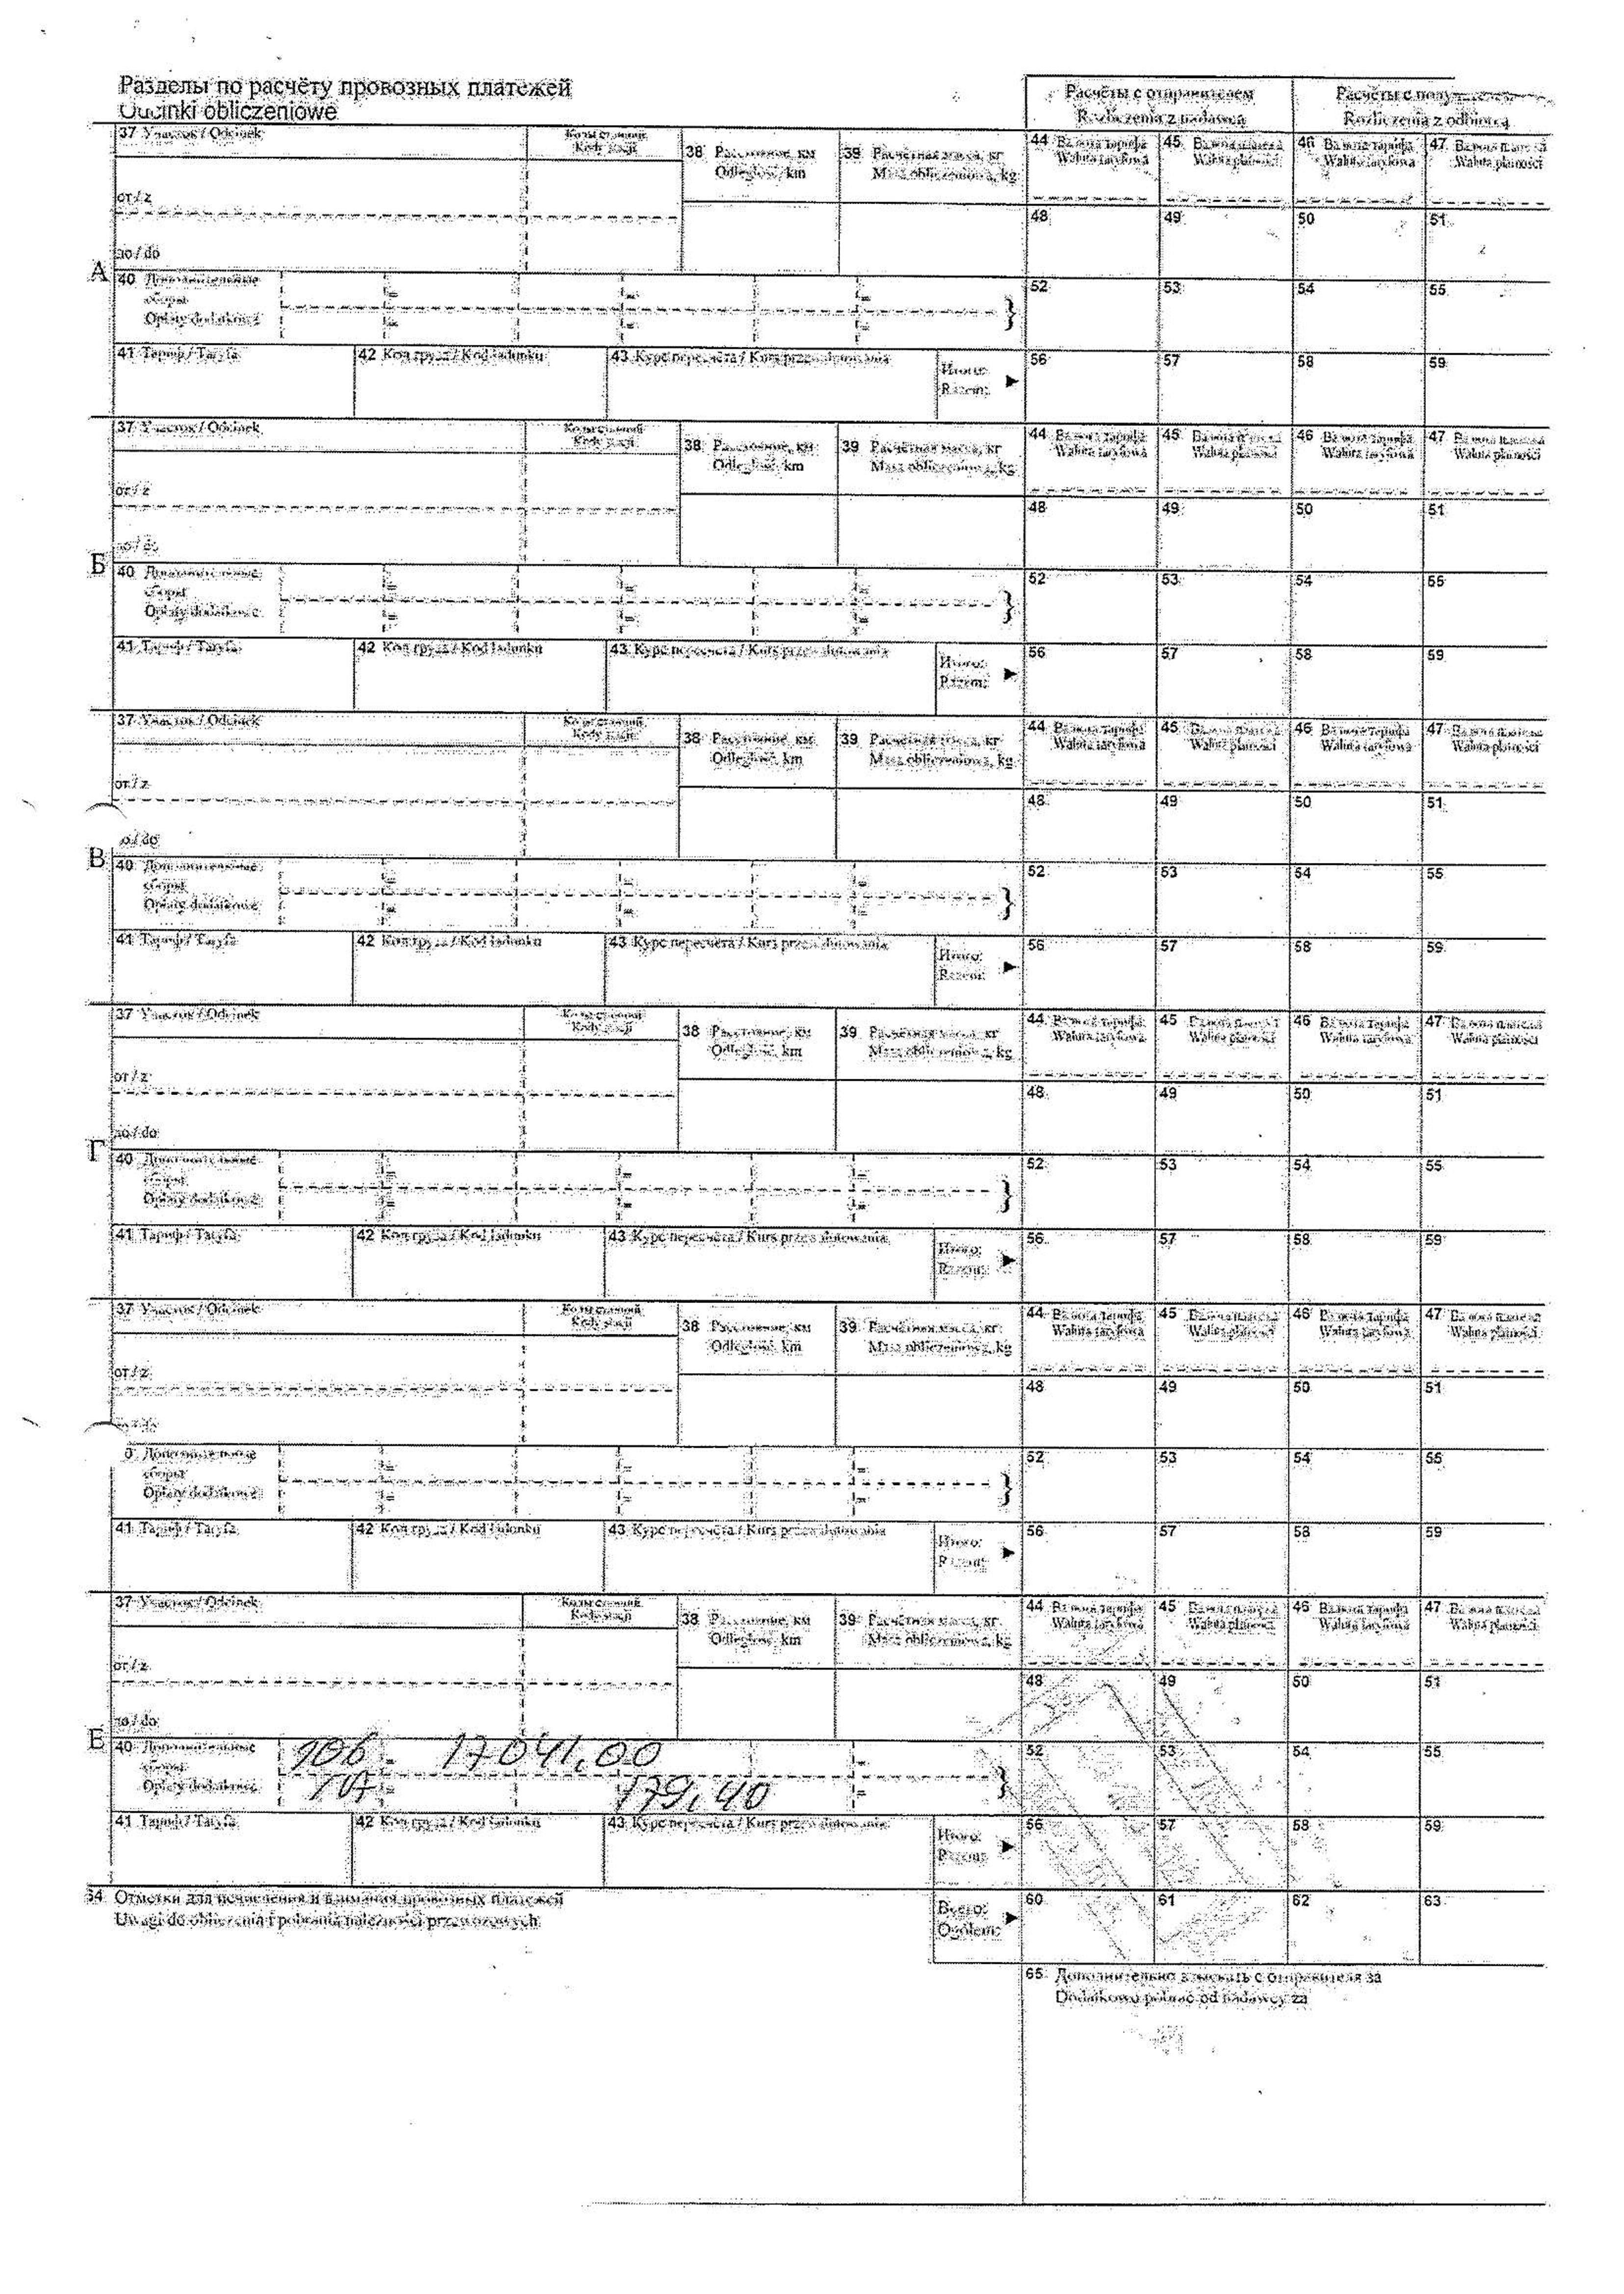 Разделы по расчёту провозных платежей
Odcinki obliczeniowe
Расчёты с отправителем
Rozliczenia z nadawcą
Расчёты с
Rozliczenia z odbiorcą
37 Участок / Odcinek
Коды станций
Kody stacji
38 Расстояние, км
Odległość, km
39 Расчётная масса, кг
Masa obliczeniowa, kg
44 Валюта тарифа
Waluta taryfowa
45 Валюта платежа
Waluta płatności
46 Валюта тарифа
Waluta taryfowa
47 Валюта платежа
Waluta płatności
от / z
48 49 50 51
до / do
А
40 Дополнительные
сборы
Opłaty dodatkowe
52 53 54 55
41 Тариф / Taryfa
42 Код груза / Kod ładunku
43 Курс пересчёта / Kurs przeliczania
Итого:
Razem:
56 57 58 59
37 Участок / Odcinek
Коды станций
Kody stacji
38 Расстояние, км
Odległość, km
39 Расчётная масса, кг
Masa obliczeniowa, kg
44 Валюта тарифа
Waluta taryfowa
45 Валюта платежа
Waluta płatności
46 Валюта тарифа
Waluta taryfowa
47 Валюта платежа
Waluta płatności
от / z
48 49 50 51
до / do
Б
40 Дополнительные
сборы
Opłaty dodatkowe
52 53 54 55
41 Тариф / Taryfa
42 Код груза / Kod ładunku
43 Курс пересчёта / Kurs przeliczania
Итого:
Razem:
56 57 58 59
37 Участок / Odcinek
Коды станций
Kody stacji
38 Расстояние, км
Odległość, km
39 Расчётная масса, кг
Masa obliczeniowa, kg
44 Валюта тарифа
Waluta taryfowa
45 Валюта платежа
Waluta płatności
46 Валюта тарифа
Waluta taryfowa
47 Валюта платежа
Waluta płatności
от / z
48 49 50 51
о / do
В
40 Дополнительные
сборы
Opłaty dodatkowe
52 53 54 55
41 Тариф / Taryfa
42 Код груза / Kod ładunku
43 Курс пересчёта / Kurs przeliczania
Итого:
Razem:
56 57 58 59
37 Участок / Odcinek
Коды станций
Kody stacji
38 Расстояние, км
Odległość, km
39 Расчётная масса, кг
Masa obliczeniowa, kg
44 Валюта тарифа
Waluta taryfowa
45 Валюта платежа
Waluta płatności
46 Валюта тарифа
Waluta taryfowa
47 Валюта платежа
Waluta płatności
от / z
48 49 50 51
до / do
Г
40 Дополнительные
сборы
Opłaty dodatkowe
52 53 54 55
41 Тариф / Taryfa
42 Код груза / Kod ładunku
43 Курс пересчёта / Kurs przeliczania
Итого:
Razem:
56 57 58 59
37 Участок / Odcinek
Коды станций
Kody stacji
38 Расстояние, км
Odległość, km
39 Расчётная масса, кг
Masa obliczeniowa, kg
44 Валюта тарифа
Waluta taryfowa
45 Валюта платежа
Waluta płatności
46 Валюта тарифа
Waluta taryfowa
47 Валюта платежа
Waluta płatności
от / z
48 49 50 51
Дополнительные
сборы
Opłaty dodatkowe
52 53 54 55
41 Тариф / Taryfa
42 Код груза / Kod ładunku
43 Курс пересчёта / Kurs przeliczania
Итого:
Razem:
56 57 58 59
37 Участок / Odcinek
Коды станций
Kody stacji
38 Расстояние, км
Odległość, km
39 Расчётная масса, кг
Masa obliczeniowa, kg
44 Валюта тарифа
Waluta taryfowa
45 Валюта платежа
Waluta płatności
46 Валюта тарифа
Waluta taryfowa
47 Валюта платежа
Waluta płatności
от / z
48 49 50 51
до / do
Е
40 Дополнительные
сборы
Opłaty dodatkowe
106 - 17041,00
179,40
52 53 54 55
41 Тариф / Taryfa
42 Код груза / Kod ładunku
43 Курс пересчёта / Kurs przeliczania
Итого:
Razem:
56 57 58 59
64 Отметки для исчисления и взимания провозных платежей
Uwagi do obliczenia i pobrania należności przewozowych
Всего:
Ogółem:
60 61 62 63
65 Дополнительно взыскать с отправителя за
Dodatkowo pobrać od nadawcy za